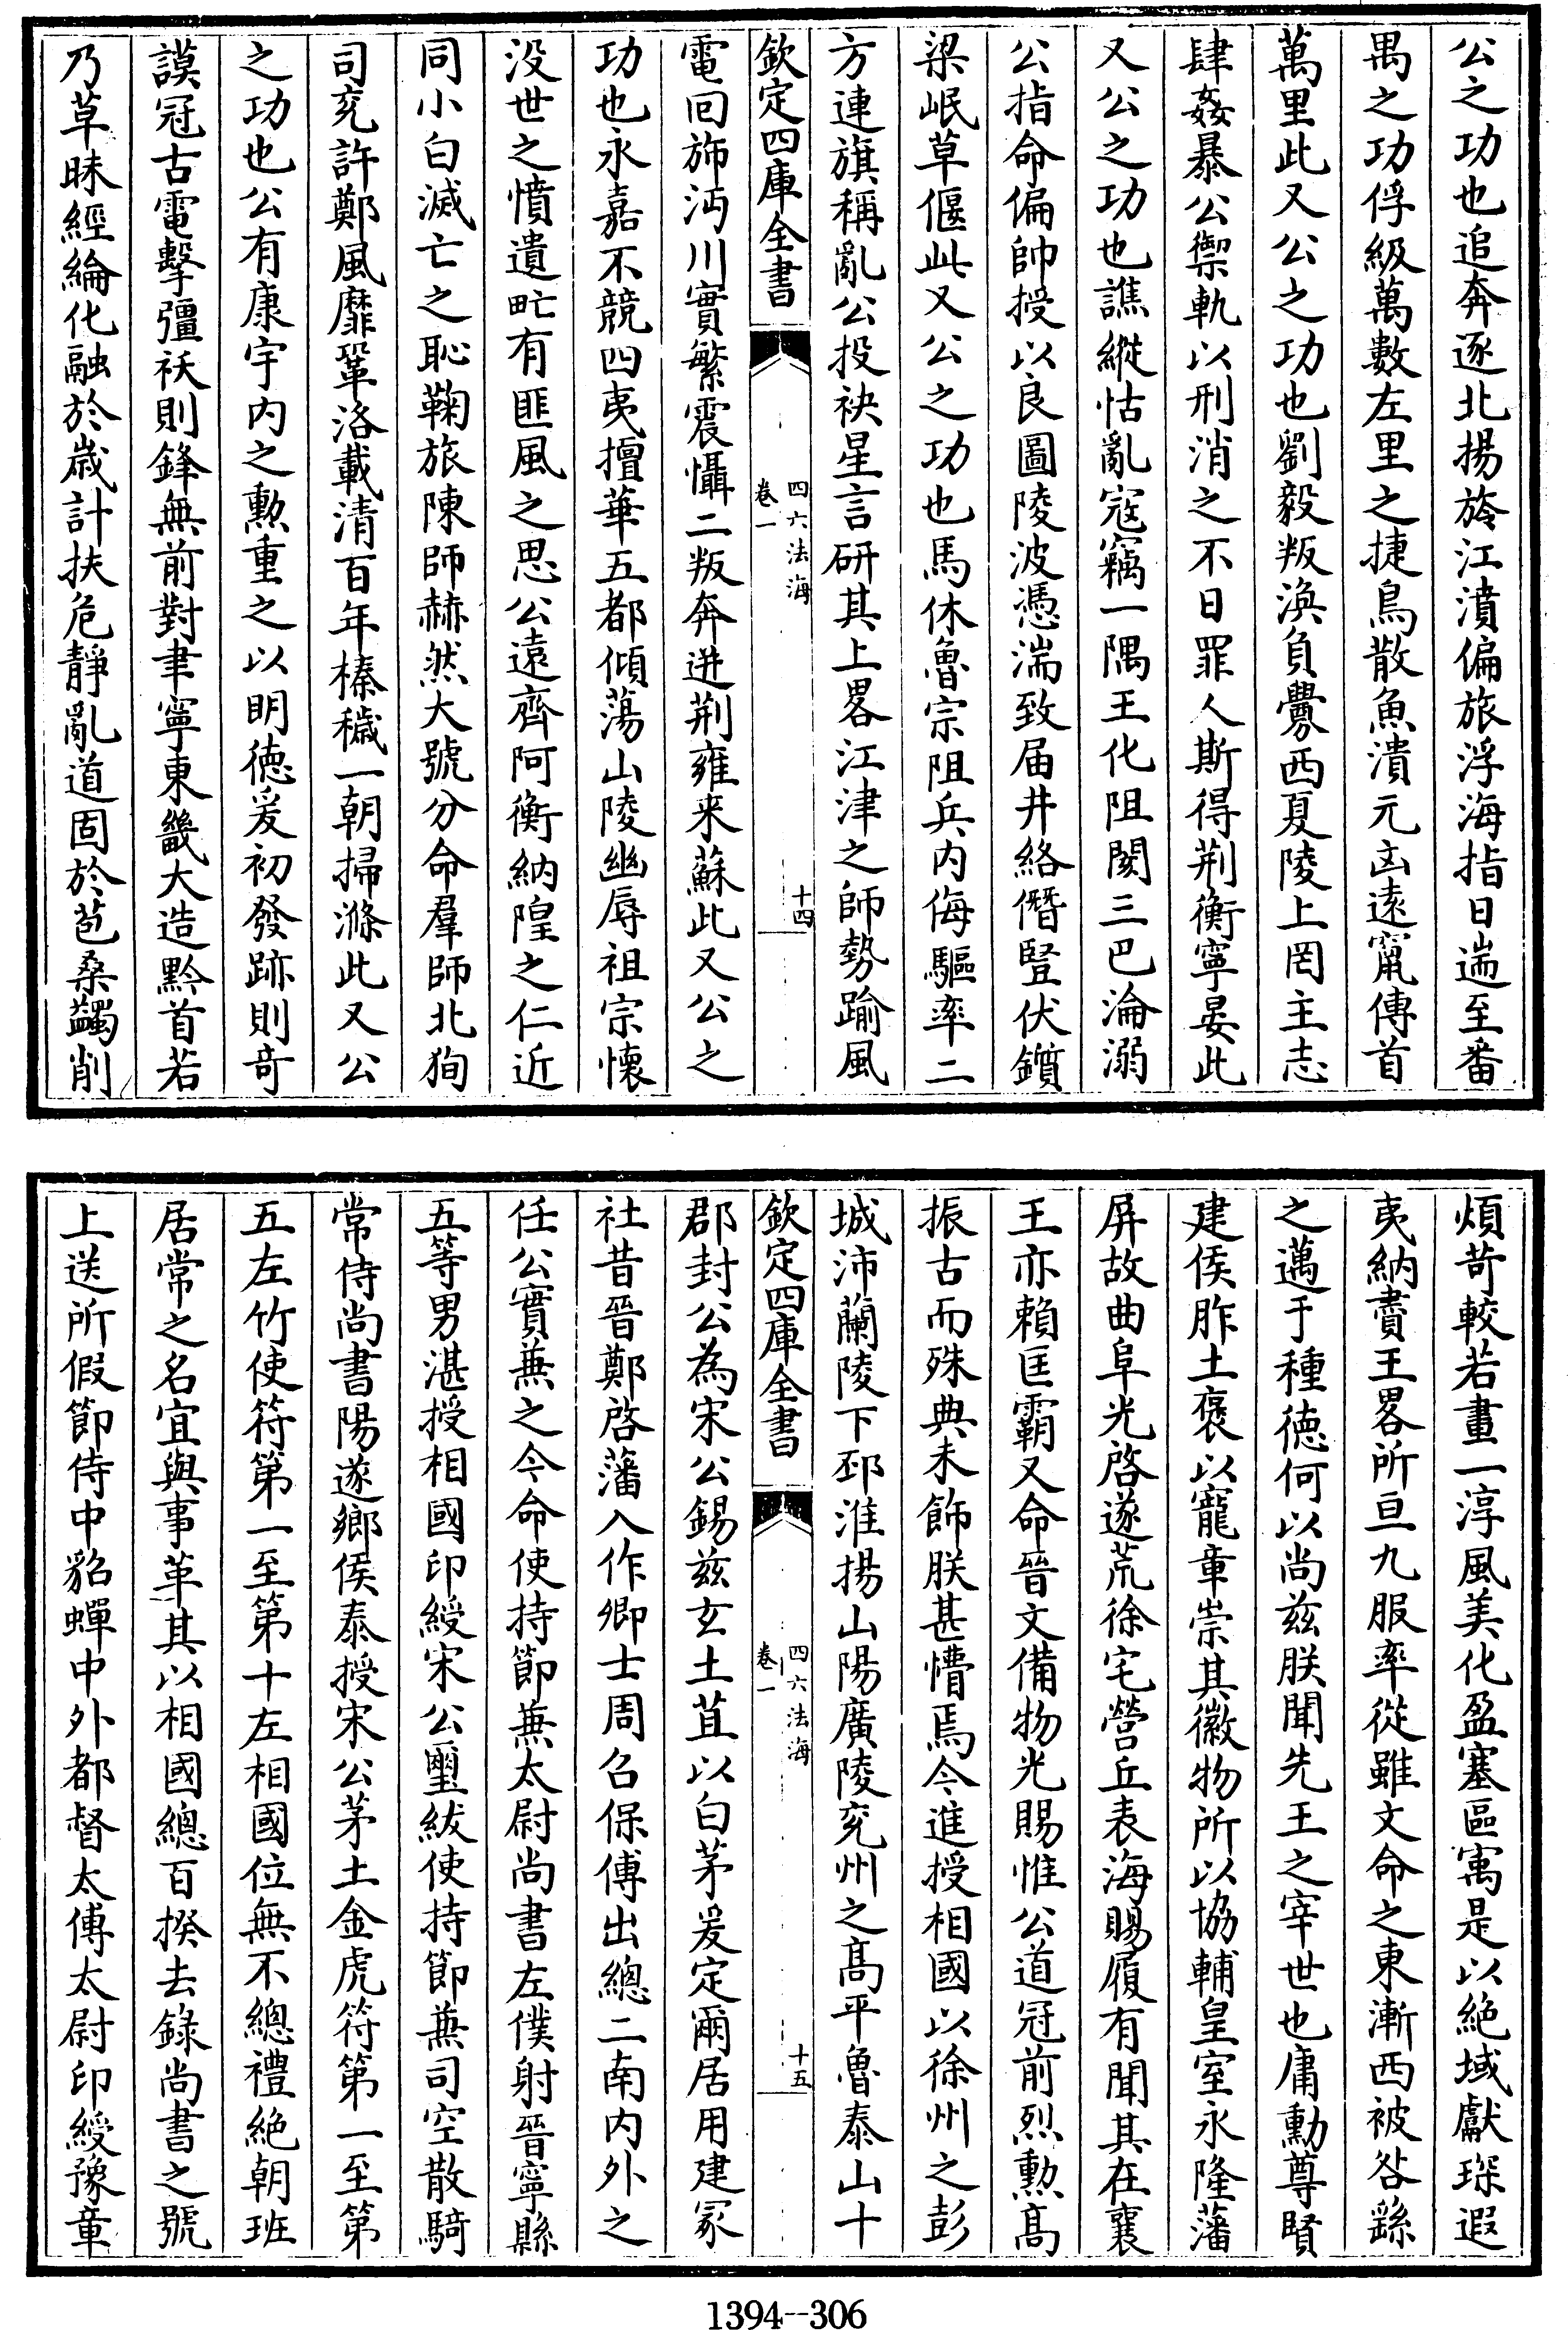 公之功也追奔逐北揚旍江濆偏旅浮海指日遄至番
禺之功俘級萬數左里之捷鳥散魚潰元凶遠竄傳首
萬里此又公之功也劉毅叛渙負釁西夏陵上罔主志
肆姦暴公禦軌以刑消之不日罪人斯得荆衡寧晏此
又公之功也譙縱怙亂寇竊一隅王化阻閡三巴淪溺
公指命偏帥授以良圖陵波憑湍致届井絡僭豎伏鑕
梁岷草偃此又公之功也馬休魯宗阻兵内侮驅率二
方連旗稱亂公投袂星言研其上畧江津之師勢踰風
欽定四庫全書
四六法海
卷一
十四
電回斾沔川實繁震懾二叛奔迸荆雍来蘇此又公之
功也永嘉不競四夷擅華五都傾蕩山陵幽辱祖宗懷
没世之憤遺甿有匪風之思公遠齊阿衡納隍之仁近
同小白滅亡之恥鞠旅陳師赫然大號分命羣師北狥
司兖許鄭風靡鞏洛載清百年榛穢一朝掃滌此又公
之功也公有康宇内之勲重之以明德爰初發跡則奇
謨冠古電擊彊祅則鋒無前對聿寧東畿大造黔首若
乃草昧經綸化融於歳計扶危靜亂道固於苞桑蠲削
煩苛較若畫一淳風美化盈塞區㝢是以絶域獻琛遐
夷納賮王畧所亘九服率從雖文命之東漸西被咎繇
之邁于種德何以尚兹朕聞先王之宰世也庸勳尊賢
建侯胙土褒以寵章崇其徽物所以協輔皇室永隆藩
屏故曲阜光啓遂荒徐宅營丘表海賜履有聞其在襄
王亦賴匡霸又命晉文備物光賜惟公道冠前烈勲髙
振古而殊典未飾朕甚懵焉今進授相國以徐州之彭
城沛蘭陵下邳淮揚山陽廣陵兖州之髙平魯泰山十
欽定四庫全書
四六法海
卷一
十五
郡封公為宋公錫兹玄土苴以白茅爰定爾居用建冢
社昔晉鄭啓藩入作卿士周召保傅出總二南内外之
任公實兼之今命使持節兼太尉尚書左僕射晉寧縣
五等男湛授相國印綬宋公璽紱使持節兼司空散騎
常侍尚書陽遂鄉侯泰授宋公茅土金虎符第一至第
五左竹使符第一至第十左相國位無不總禮絶朝班
居常之名宜與事革其以相國總百揆去錄尚書之號
上送所假節侍中貂蟬中外都督太傅太尉印綬豫章
1394--306